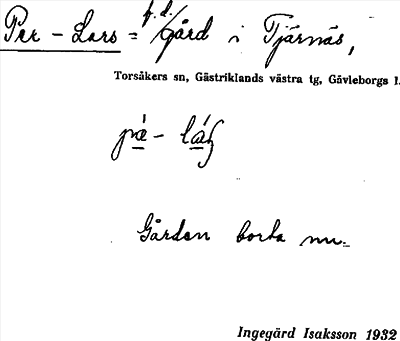 Per-Lars = f.d. Gård i Tjärnäs,
Torsåkers sn, Gästriklands västra tg, Gävleborgs l.
Gården borta nu.
Ingegärd Isaksson 1932